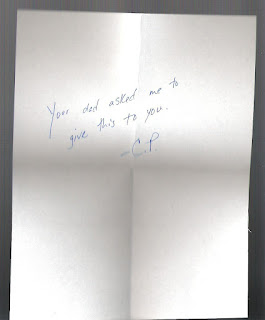 Your dad asked me to
give this to you.
-C.P.